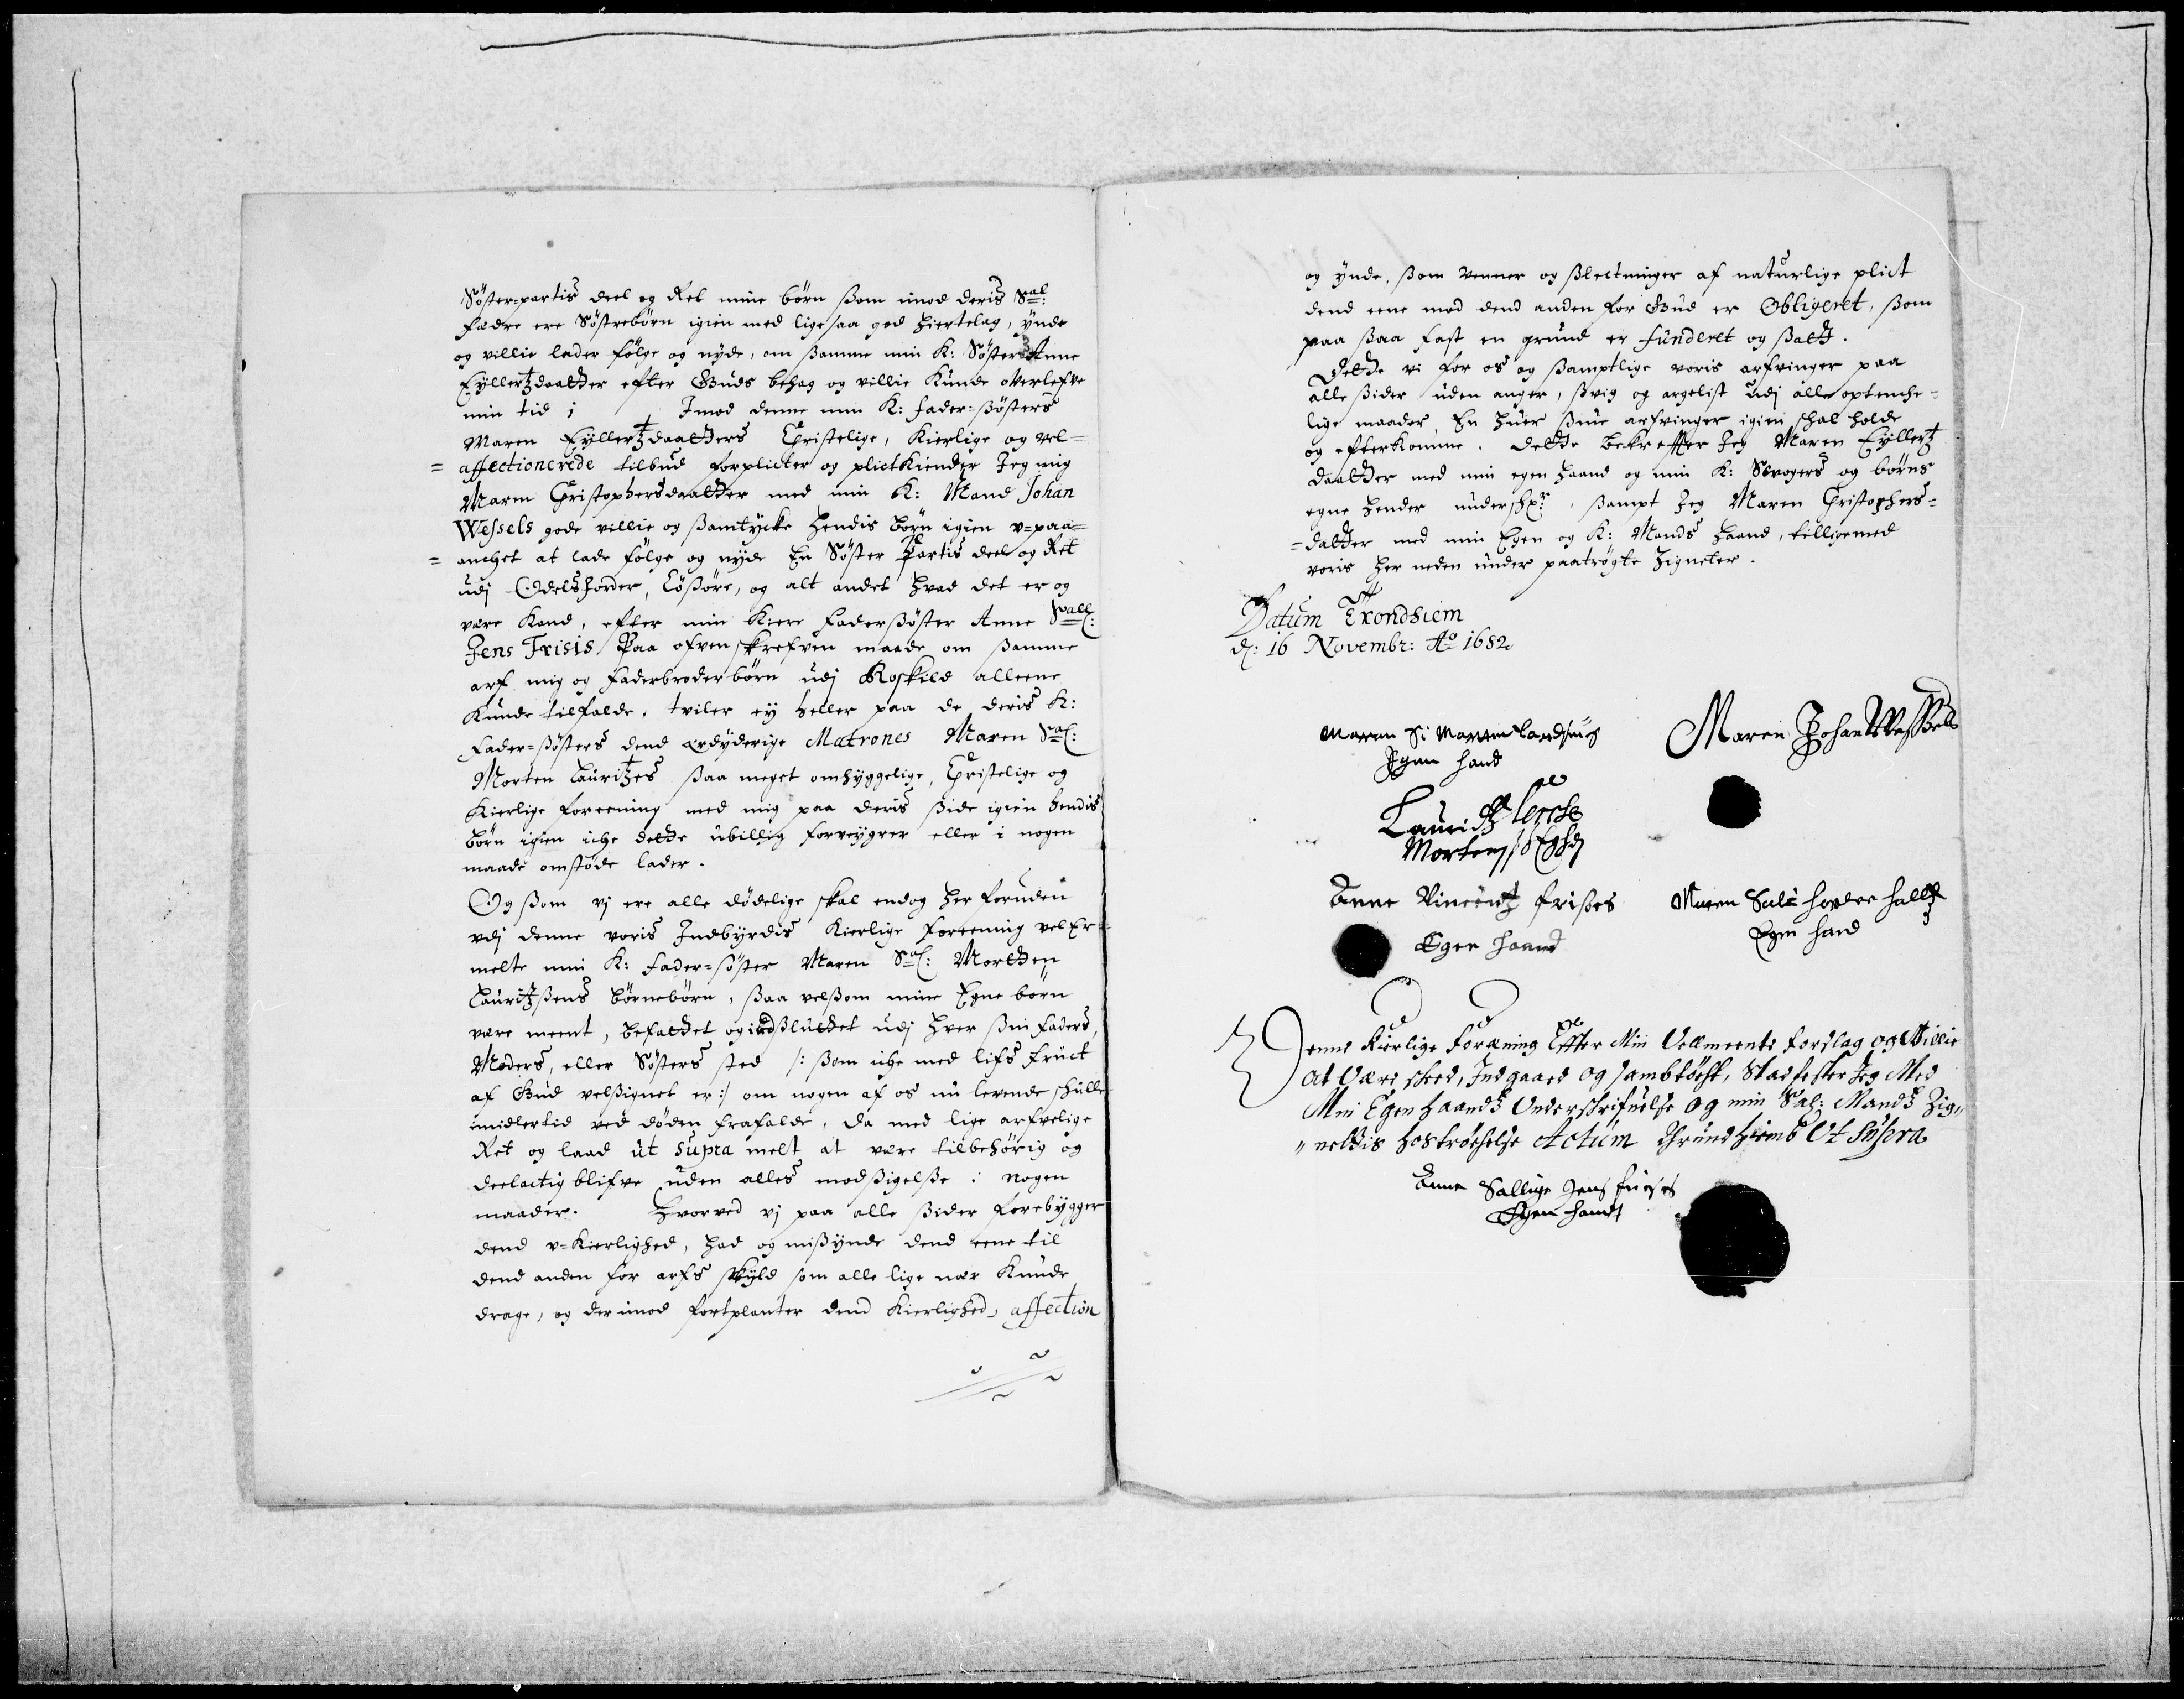 Søster-partis deel og Ret mine børn ßom imod deris Sal:
fædre ere Søstrebørn igien med ligesaa god hiertelag, ynde
og villie lader følge og nyde, om ßamme min K: Søster Anne
Eyllertzdaatter efter Guds behag og villie kunde overlefve
min tid; Imod denne min K: fader-ßøsters
Maren Eyllertzdaatters Christelige, kierlige og vel-
= affectionerede tilbud forplicter og plictkiender Jeg mig
Maren Christophersdaatter med min K: Mand Johan
Wessels gode villie og ßamtycke hendis børn igien v-paa-
= anchet at lade følge og nyde En Søster Partis deel og Ret
udj Odelsjorder, Løßøre, og alt andet hvad det er og
være kand, efter min kiere faderßøster Anne Sall:
Jens Frisis Paa ofvenskrefven maade om ßamme
arf mig og faderbroderbørn udj Roskild alleene
kunde tilfalde, tviler ey heller paa de deris K:
Fader-ßøsters dend ærdyderige Matrones Maren Sal:
Morten Lauritzes ßaa meget omhyggelige, Christelige og
kierlige foreening med mig paa deris ßide igien hendis
børn igien iche dette ubillig forveygrer eller i nogen
maade omstøde lader.
Og ßom vj ere alle dødelige skal endog her foruden
vdj denne voris Indbyrdis kierlige foreening vel Er-
melte min K: fader-søster Maren Sal: Mortten
Lauritzßens børnebørn, ßaa velßom mine Egne børn
være meent, befattet og indßluttet udj hver ßin faders,
Moders, eller Søsters sted /: ßom iche med lifs fruct
af Gud velßignet er :/ om nogen af os nu levende skulle
imidlertid ved døden frafalde, da med lige arfvelige
Ret og laad ut supra melt at være tilbehørig og
deelactig blifve uden alles modßigelße i nogen
maader. Hvorved vj paa alle ßider forebygger
dend v-kierlighed, had og mißynde dend eene til
dend anden for arfs skyld som alle lige nær kunde
drage, og der imod fortplanter dend kierlighed, affection
og ynde, ßom venner og ßlectninger af naturlige plict
dend eene mod dend anden for Gud er Obligeret, ßom
paa ßaa fast en grund er funderet og ßatt.
Dette vi for os og ßamptlige voris arfvinger paa
alle ßider uden anger, ßvig og argelist udj alle optenche-
lige maader, En huer ßine arfvinger igien skal holde
og efterkomme. Dette bekreffter Jeg Maren Eyllertz
daatter med min egen haand og min K: Svogers og børns
egne hender underschr: , ßampt Jeg Maren Christophers-
=datter med min Egen og K: Mands haand, tilligemed
voris her neden under paatrøgte Zigneter.
Datum Trondhiem
d: 16 Novembr: Ao 1682
Maren Sl Morten
Egen hand
Maren Johan Weßels
Lauridtz Lerche
Mortens Eghd
Anne Vincentz frises
Egen haand
Maren Sali
Egen hand
Denne kierlige Foræning Effter Min Vellmeente forslag og Willie
at Være skeed, Indgaaed og sambtøcht, Stadfester Jeg Med
Min Egen haandtz Underskrifuelße og min Sal: Mandtz Zig„
„nettis hostrøchelße Actum Thrundhiemb Ut Supra
Anne Sallige Jens friises
Egen handt